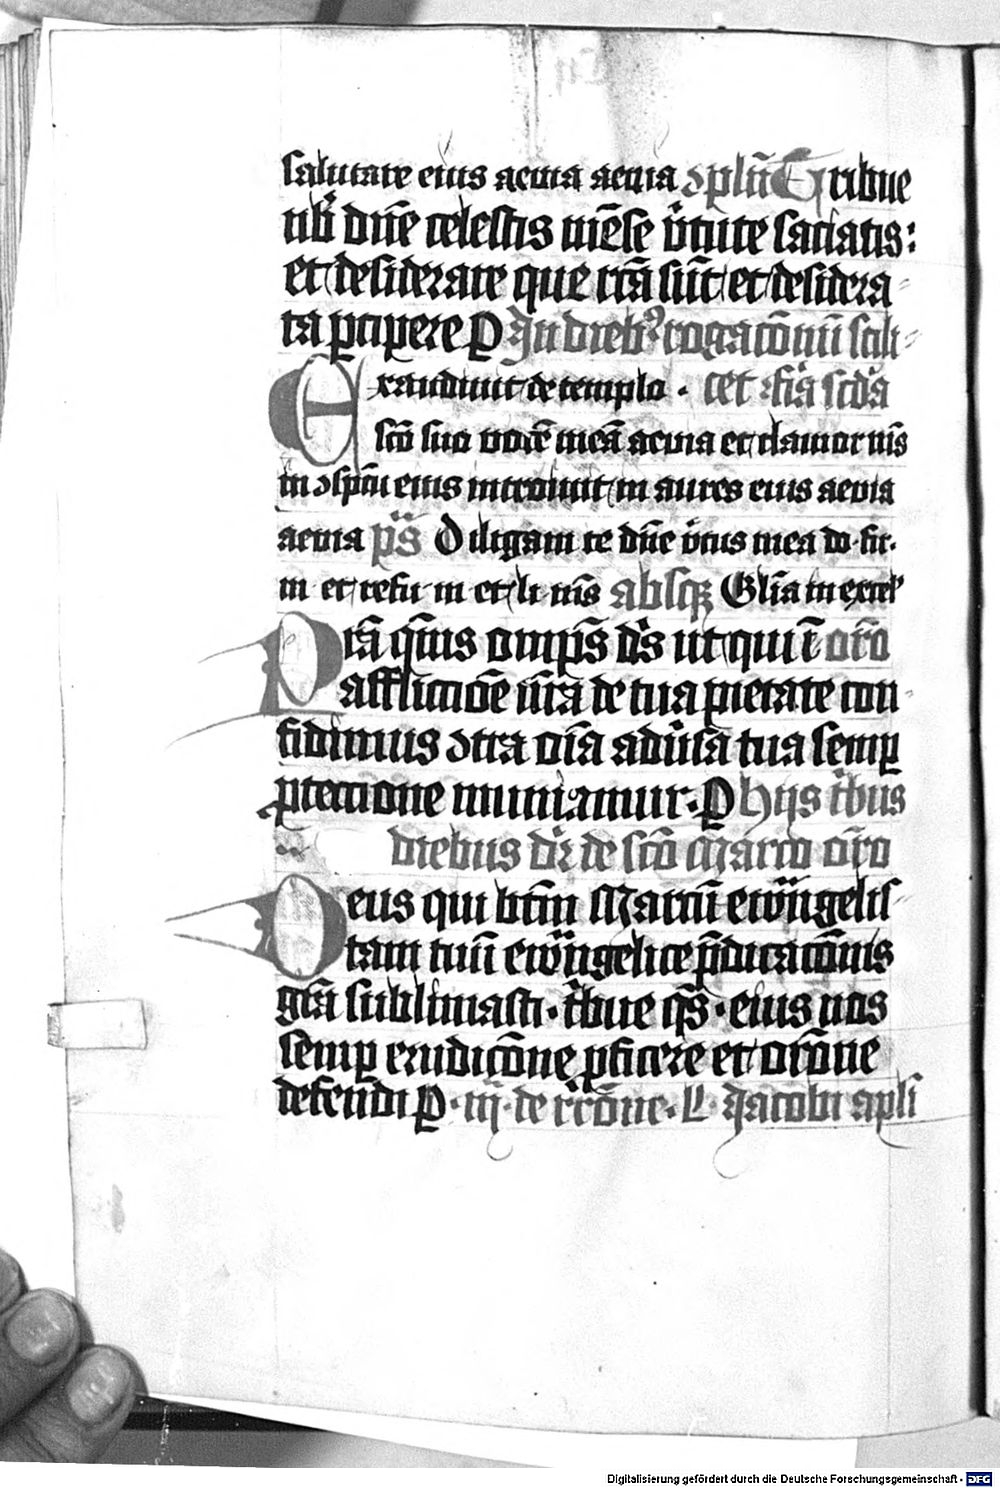 salutare eius aeuia aeuia ↄplūͤ Tribue
nob̾ dn̄e celestis mēse v̾tute saciatis:
et desiderare que rc̄ā sūt et desidera
ta ꝑciꝑere P In dieb⁹ rogacōnū scili
Exaudiuit de templo . cet f̾ia scd̾a
scō suo vocē meā aeuia et clamor m̄s
in ↄspc̄u eius introiuit in aures eius aeuia
aeuia p̄s Diligam te dn̄e v̾tus mea do fir.
m et refu m et li m̄s absqꝫ Gl̄ia in excel
Pr̄ā q̄ms omp̄s ds̄ ut qui ī or̄o
afflictiōe nr̄ā de tua pietate con
fidimus ↄtra oīa adu̾sa tua semꝑ
ꝓteccione muniamur. P Hijs t̾bus
diebus dr̄ de scō Marco or̄o
Deus qui btm̄ Marcū ewāngelis
tam tuū ewāngelice p̄dicacōnis
gr̄ā sublimasti. t̾bue qs̄. eius nos
semꝑ erudicōne ꝓficere et orōne
defendi P. iij. de r̾rcōne. L̄. Jacobi apl̄i
Digitalisierung gefördert durch die Deutsche Forschungsgemeinschaft - DFG